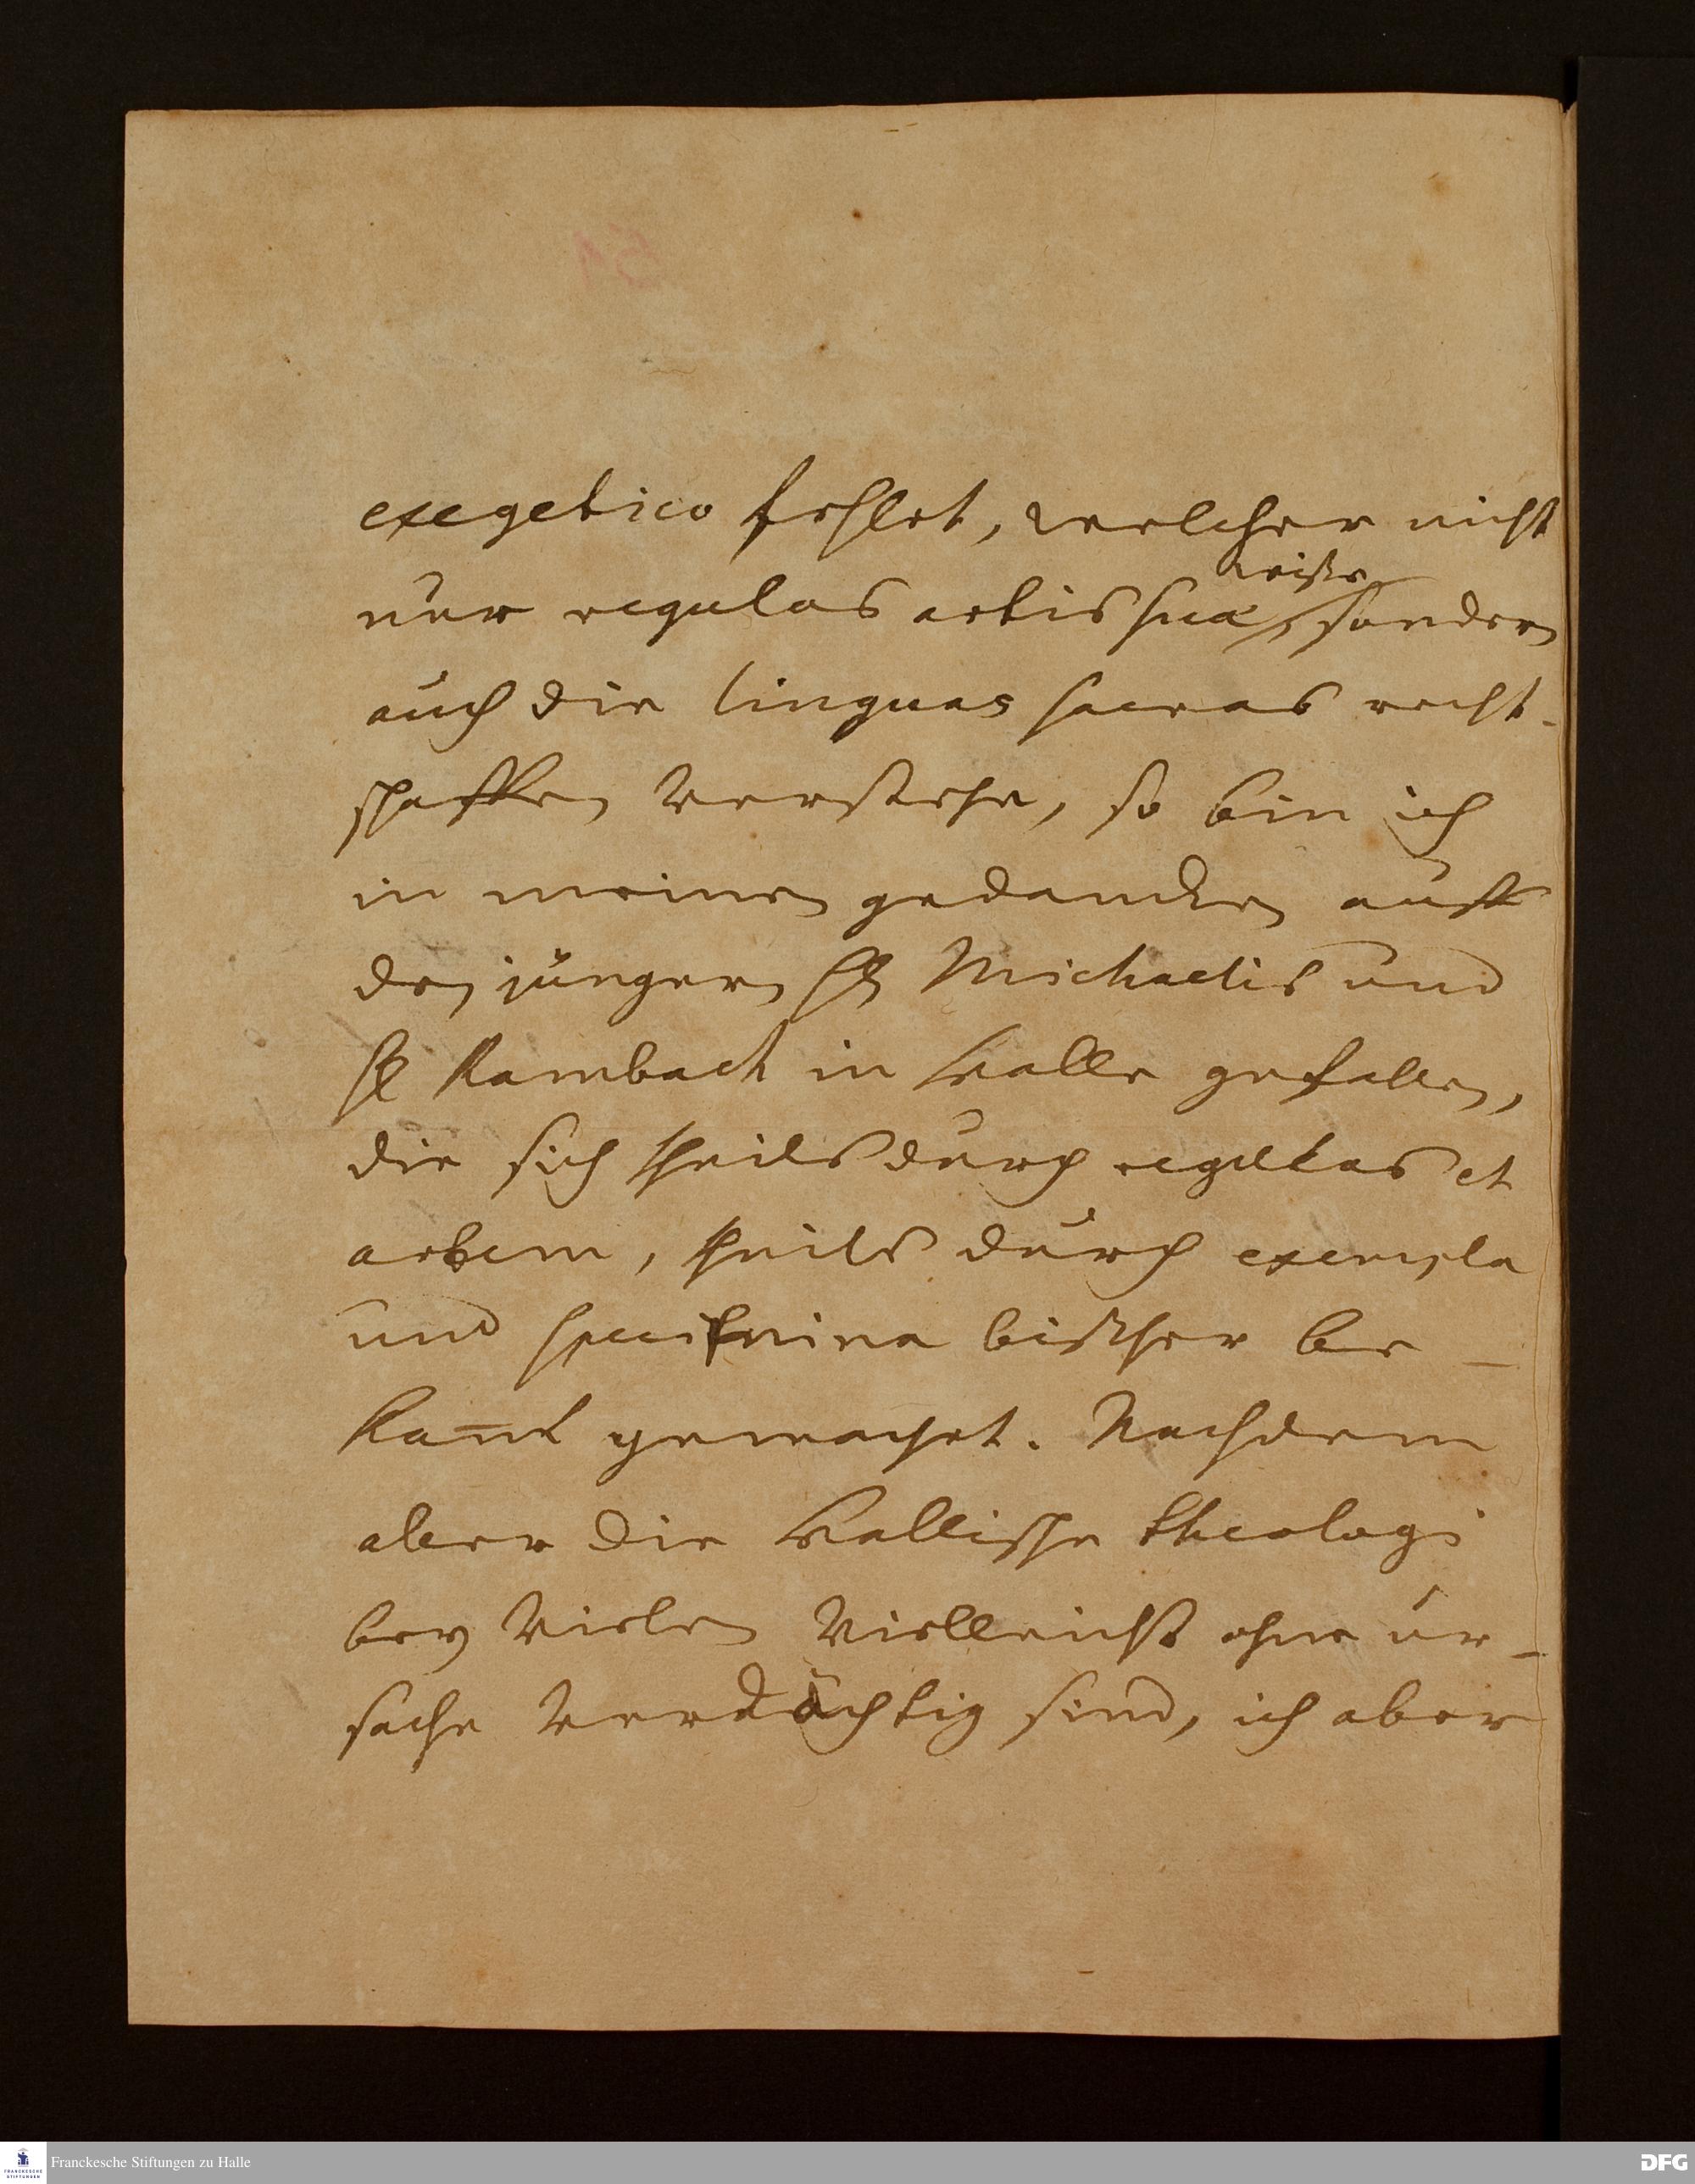 exegetico fehlet, welcher nicht
wiße
nur regulas artis suæ, sondern
auch die linguas sacras recht-
schaffen verstehe, so bin ich
in meinen gedancken auff
den jüngern H. Michaelis und
H. Rambach in Halle gefallen,
die sich theils durch regulas et
artem, theils durch exempla
und specimina bißher be-
kan̄t gemachet. Nachdem
aber die Hallische theologi
bey vielen vielleicht ohne ur-
sache verdächtig sind, ich aber
Franckesche Stiftungen zu Halle
FRANCKESCHE STIFTUNGEN
DFG